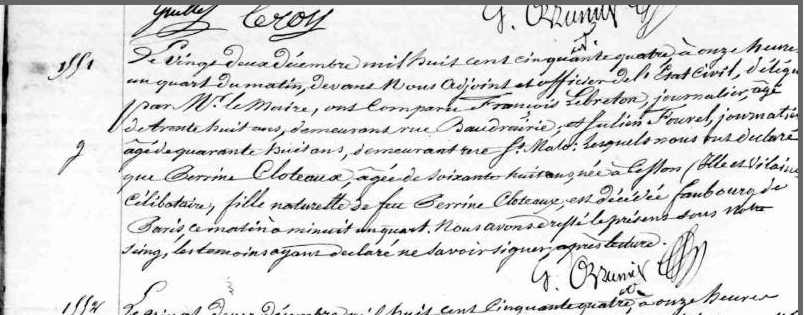 Leroy G. Ozumir
1551 Le vingt deux décembre mil huit cent cinquante quatre, à onze heures
un quart du matin, devant Nous adjoint et officier de l'Etat Civil, délégué
par Mr. le Maire, ont comparu François Lebreton, journalier, agé
de trente huit ans, demeurant rue Baudrairie, et Julien Fourel, journalier
g âgé de quarante huit ans, demeurant rue St. Malo: Lesquels nous ont déclaré
que Perrine Cloteaux, agée de soixante huit ans, née à (Ille et Vilaine
Célibataire, fille naturelle de feu Perrine Cloteaux, est décédée faubourg de
Paris, ce matin à minuit un quart. Nous avons dressé le présent sous notre
seing, les temoins ayant déclaré ne savoir signer, après lecture.
G. Ozumir
1552 Le vingt deux décembre mil huit cent cinquante quatre, à onze heures